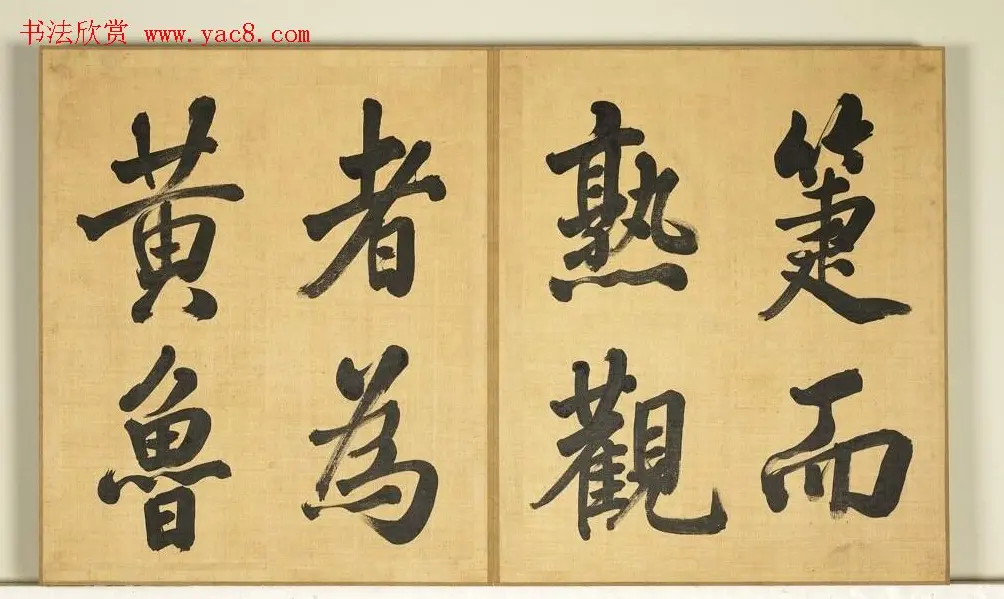 书法欣赏 www.yac8.com
箑而
熟觀
者為
黃魯